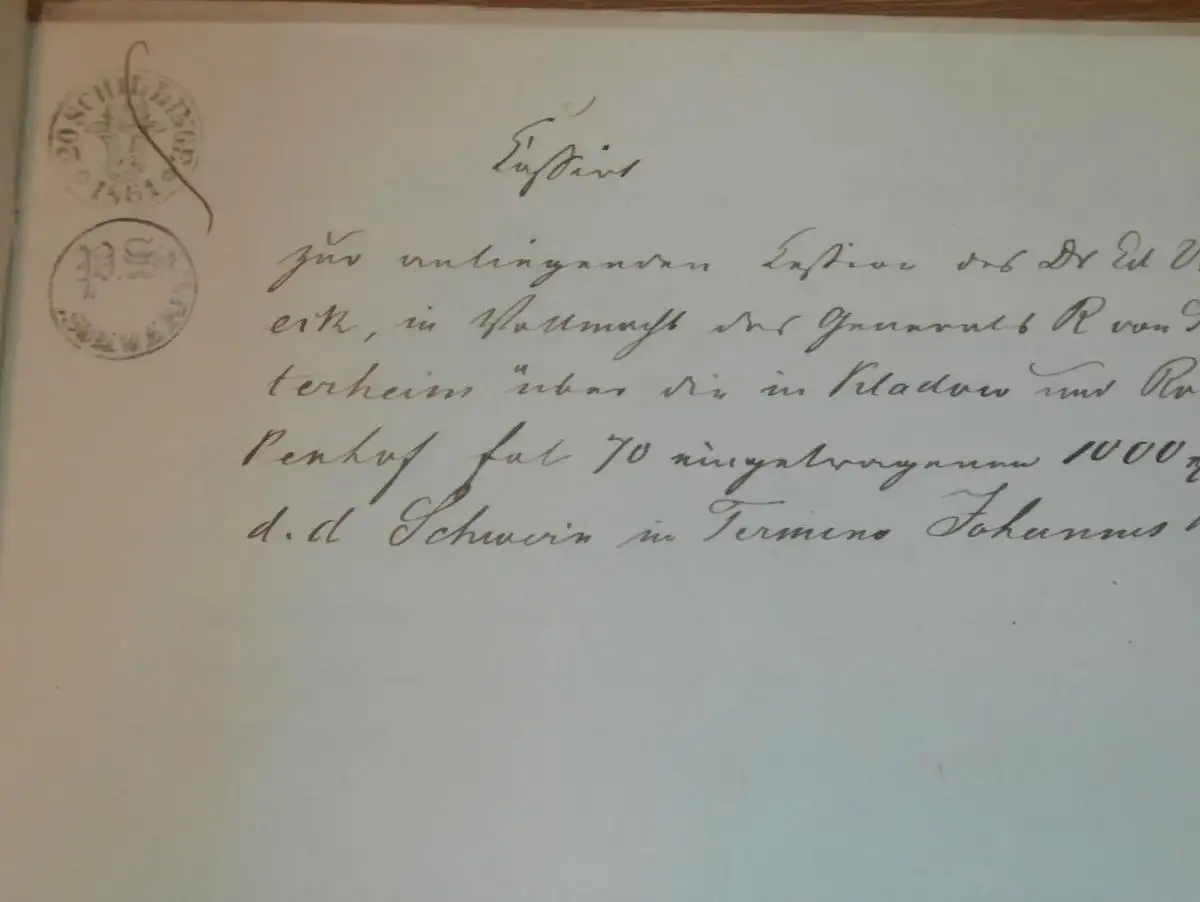 20 SCHILLINGE
1861
SCHWERIN
Cassirt
zur anliegenden Cession des Dr Ed
eck, in Vollmacht des Generals R von
terheim über die in Kladow und
kenhof fol 70 eingetragenen 1000
d. d Schwerin in Termino Johannis